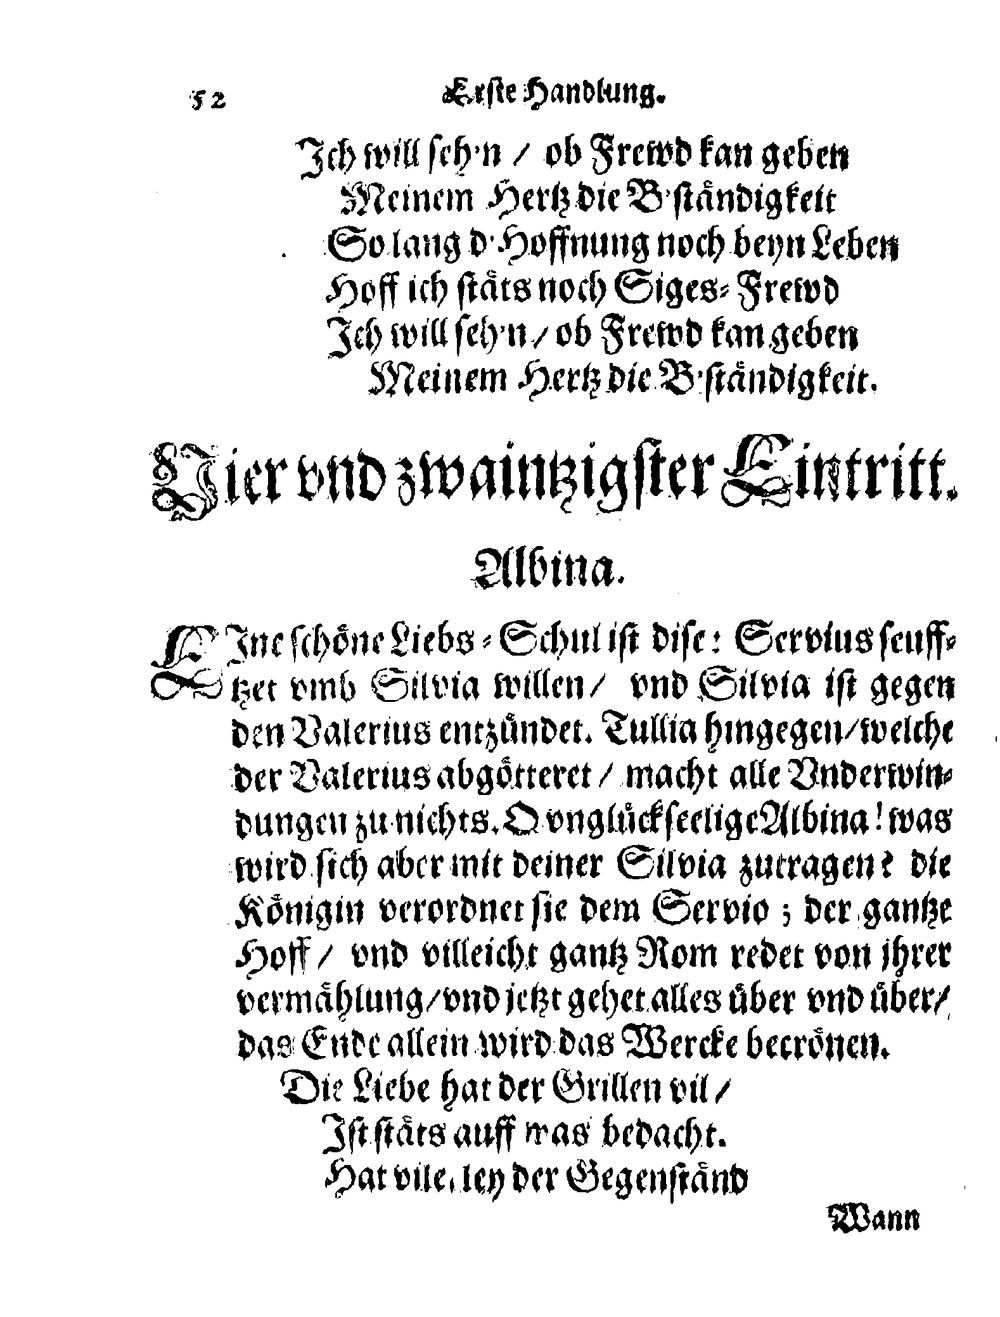 52 Erste Handlung.
Ich will seh'n / ob Frewd kan geben
Meinem Hertz die B'ständigkeit
So lang d' Hoffnung noch beyn Leben
Hoff ich stäts noch Siges-Frewd
Ich will seh'n / ob Frewd kan geben
Meinem Hertz die B'ständigkeit.
Vier vnd zwaintzigster Eintritt.
Albina.
EIne schöne Liebs-Schul ist dise: Servius seuff-
tzet vmb Silvia willen / vnd Silvia ist gegen
den Valerius entzündet. Tullia hingegen / welche
der Valerius abgötteret / macht alle Vnderwin-
dungen zu nichts. O vnglückseelige Albina! was
wird sich aber mit deiner Silvia zutragen? die
Königin verordnet sie dem Servio; der gantze
Hoff / vnd villeicht gantz Rom redet von jhrer
vermählung / vnd jetzt gehet alles über vnd über /
das Ende allein wird das Wercke becrönen.
Die Liebe hat der Grillen vil /
Ist stäts auff was bedacht.
Hat vilerley der Gegenständ
Wann